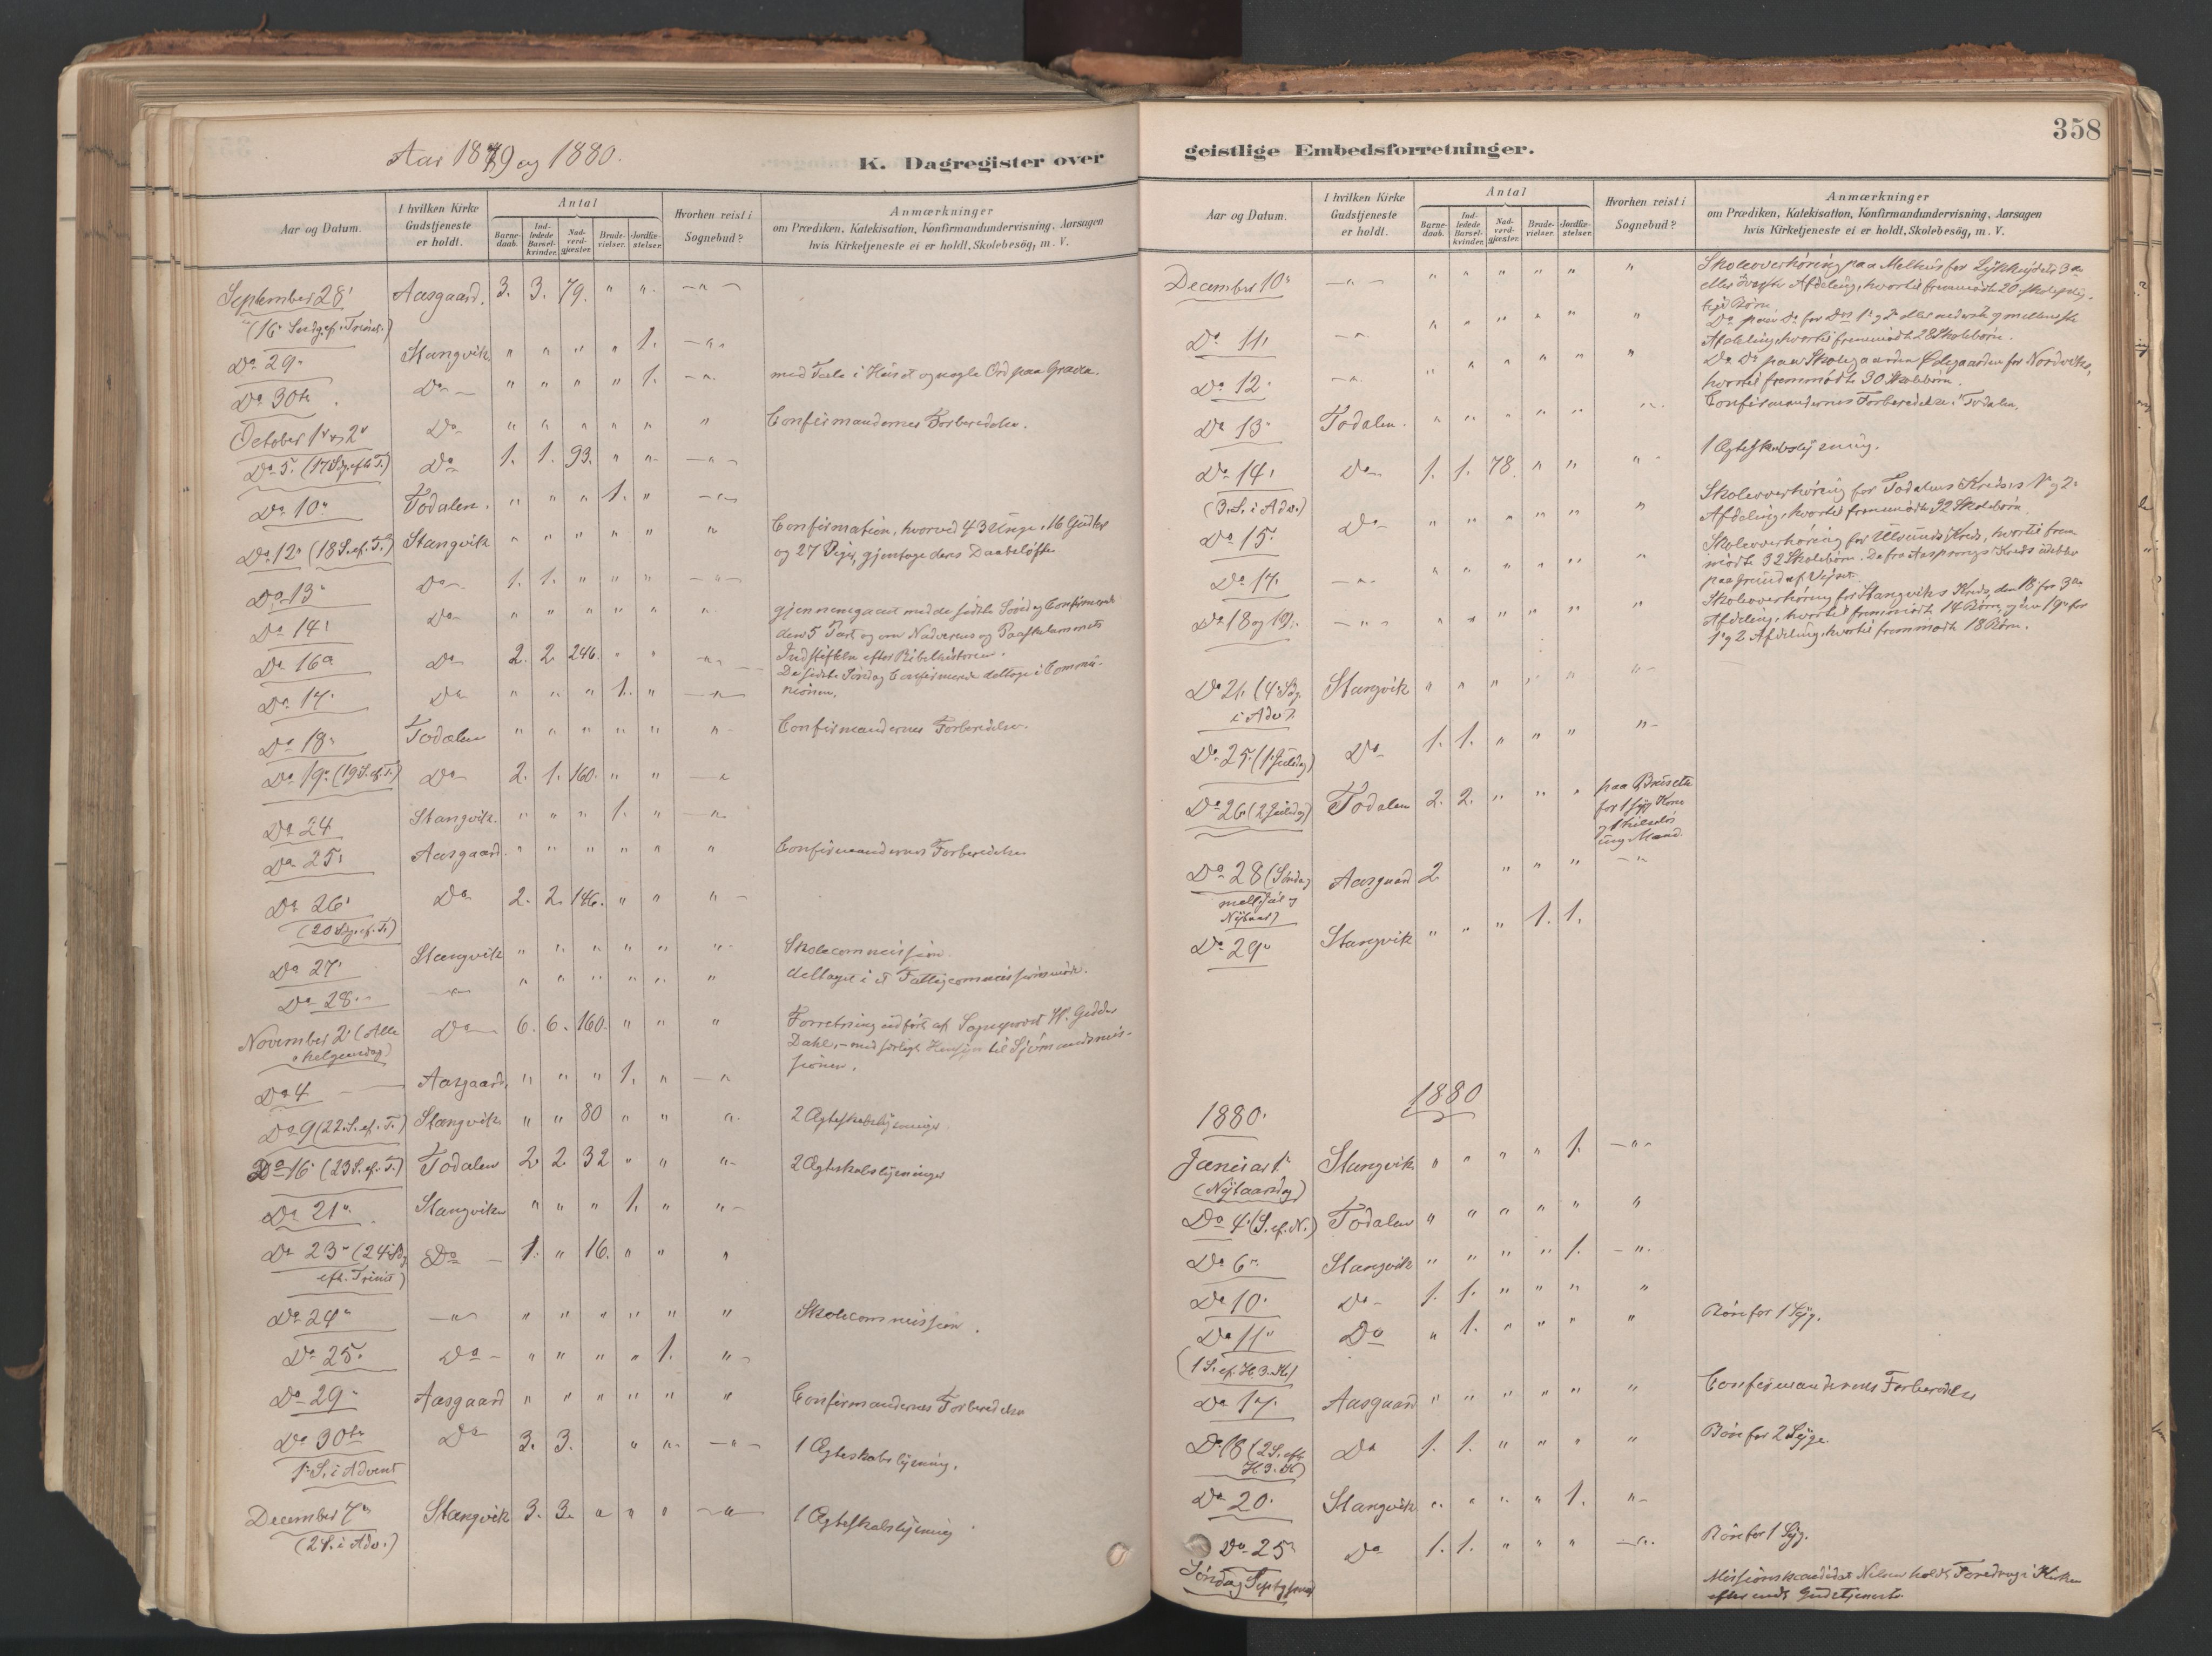 Aar 1879 og 1880.
K. Dagregister over
Aar og Datum.
I hvilken Kirke Gudstjeneste er holdt.
Antal
Barne-daab.
Ind-ledede Barsel-kvinder.
Nad-verd-gjæster.
Brude-vielser.
Jordfæ-stelser.
Hvorhen reist i Sognebud?
Anmærkninger
om Prædiken, Katekisation, Konfirmandundervisning, Aarsagen
hvis Kirketjeneste ei er holdt, Skolebesög, m. V.
September 28' Aasgaard. 3. 3. 79. " " – " –
(16' Sndg. ef. Trinit.)
Do 29" Stangvik " " " " 1. – " –
Do 30te Do " " " " 1. – " med Tale i Huset og nogle Ord paa Graven.
October 1" og 2" Do " " " " " " Confirmandernes Forberedelse.
Do 5. (17 Sg. eft. T.) Do 1. 1. 93. " " – " –
Do 10" Todalen. " " " 1. " – " –
Do 12" (18 S. ef. T.) Stangvik " " " " " " Confirmation, hvorved 43 Unge, 16 Gutter
og 27 Piger, gjentoge deres Daabsløfte
Do 13" Do 1. 1. " " " – " –
Do 14' Do " " " " " " gjennemgaaet med de sidste Søndag Confirmerede
den 5 Part og om Nadverens og Paaskelammets
Do 16" Do 2. 2. 246. " " – " – Indstiftelse efter Bibelhistorien.
De sidste Søndag Confirmerede deltoge i Commu-
Do 17. Do " " " 1. " – " – nionen.
Do 18" Todalen " " " " " " Confirmandernes Forberedelse.
Do 19" (19 S. ef. T.) Do 2. 1. 160. " " – "
Do 24 Stangvik. " " " 1. " – "
Do 25' Aasgaard. " " " " " " Confirmandernes Forberedelse
Do 26' Do 2. 2. 146. " " " –
(20 Sdg. ef. T.)
Do 27' Stangvik " " " " " " Skolecommission
Do 28 – " – " " " " " " deltaget i et Fattigcommissionsmøde.
November 2' (Alle Do 6. 6. 160. " " " Forretning udført af Sogneprest W. Gedde
Helgensdag) Dahl, – med særligt Hensyn til Sjømandsmis-
sionen.
Do 4 Aasgaard. " " " 1. " – "
Do 9 (22. S. ef. T.) Stangvik " " 80 " " " 2 Ægteskabslysninger
Do 16' (23 S. ef. T.) Todalen 2 2 32 " " " 2 Ægteskabslysninger
Do 21" Stangviken " " " 1. " " –
Do 23" (24' Sdg. Do 1. " 16. " " "
eft. Trinit)
Do 24" – " – " " " " " " Skolecommission.
Do 25. Do – " " " " 1. " –
Do 29" Aasgaard " " " " " " Confirmandernes Forberedelse
Do 30te Do 3. 3. " " – " – 1 Ægteskabslysning.
1' S. i Advent
December 7" Stangvik 3. 3. " " " – " – 1 Ægteskabslysning
(2 S. i Adv.)
358
geistlige Embedsforretninger.
Aar og Datum.
I hvilken Kirke Gudstjeneste er holdt.
Antal
Barne-daab.
Ind-ledede Barsel-kvinder.
Nad-verd-gjæster.
Brude-vielser.
Jordfæ-stelser.
Hvorhen reist i Sognebud?
Anmærkninger
om Prædiken, Katekisation, Konfirmandundervisning, Aarsagen
hvis Kirketjeneste ei er holdt, Skolebesög, m. V.
December 10" – " – " " " " " " Skoleoverhøring paa Melhus for 3die
eller øverste Afdeling, hvortil fremmødte 20 skolepligtige Børn
Do 11' – " " " " " " " Do paa Do for Do 1' og 2' eller nederste og mellemste
Afdeling, hvortil fremmødte 28 Skolebørn.
Do 12. – " " " " " " " Do Do paa Skolegaarden Ødegaarden for Nordvik,
hvortil fremmødte 30 Skolebørn.
Do 13" Todalen. " " " " " " Confirmandernes Forberedelse i Todalen.
Do 14' Do 1. 1. 78. " " " 1 Ægteskabslysning.
(3. S. i Adv.)
Do 15. Do " " " " " " Skoleoverhøring for Todalens Kredses 1' og 2'
Afdeling, hvortil fremmødte 32 Skolebørn.
Do 17. – " " " " " " " Skoleoverhøring for Ulvunds Kreds, hvortil frem
mødte 32 Skolebørn. De fra Aasprongs Kreds udeblev
paa Grund af Veiret.
Do 18 og 19. – " – " " " " " " Skoleoverhøring for Stangviks Kreds, den 18' for 3die
Afdeling, hvortil fremmødte 14 Børn, og den 19" for
1' og 2 Afdeling, hvortil fremmødte 18 Børn.
Do 21. (4' Sdg. Stangvik " " " " " " –
i Adv.)
Do 25. (1. Juledag) Do 1. 1. " " " " –
Do 26" (2 Juledag) Todalen 2. 2. " " " paa
for 1 syg Kone
og 1
ung Mand.
Do 28 (Søndag Aasgaard 2. " " " – "
mell. Jul og
Nytaar)
Do 29" Stangvik " " " 1. 1.
1880
1880.
Januar 1" Stangvik " " " " 1. – " –
(Nytaarsdag)
Do 4' (S. ef. N.) Todalen " " " " " "
Do 6" Stangvik " " " " 1. – " .
Do 10. Do – 1. 1. " " " "
Do 11" Do " 1. " " " " Bøn for 1 Syg.
(1 S. ef. H. 3. K.)
Do 17. Aasgaard " " " " " " Confirmandernes Forberedelse
Do 18 (2 S. eft. Do 1. 1. " " " " Bøn for 2 Syge.
H. 3. K)
Do 20. Stangvik " " " " 1. " –
Do 25" Do 1. 1. " " " – " . Bøn for 1 Syg.
Søndag Septuages. Missionskandidat Nilsen holdt Foredrag i Kirken
efter endt Gudstjeneste.